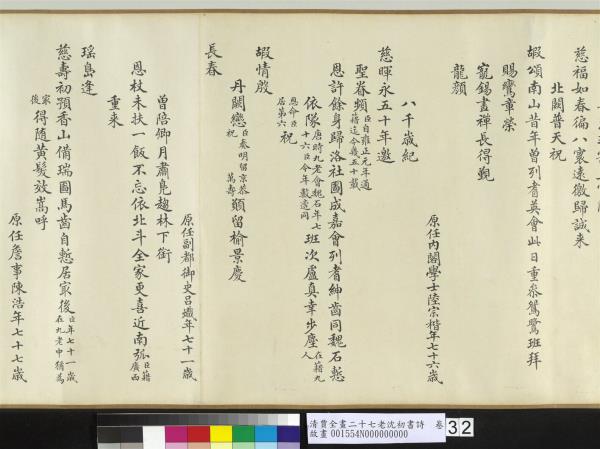 慈福如春徧八寰遠徼歸誠来
北闕普天祝
嘏頌南山昔年曾列耆英會此日重叅鴛鷺班拜
賜鸞章榮
寵錫畫禅長得覲
龍顔
原任内閣學士陸宗楷年七十六歳
八千歳紀
慈暉永五十年邀
聖眷頻臣自雍正元年通籍迄今歳五十載
恩許餘身歸洛社圖成嘉會列耆紳齒同魏石慙
依隊唐時九老會魏石年七十六臣今年數適同班次盧真幸步塵在籍九人
恩命臣居第六祝
嘏情殷
丹闕戀臣奉明留京恭祝萬壽願留榆景慶
長春
原任副都御史吕熾年七十一歳
曾陪卿月肅鳧趨林下銜
恩杖未扶一飯不忘依北斗全家更喜近南弧臣籍廣西
重来
瑶島逢
慈壽初預香山備瑞圖馬齒自慙居冣後臣年七十一歳在九老中猶為
冣後得随黄髮效嵩呼
原任詹事陳浩年七十七歳
清賈全畫二十七老沈初書詩 卷
故畫001554N000000000
32